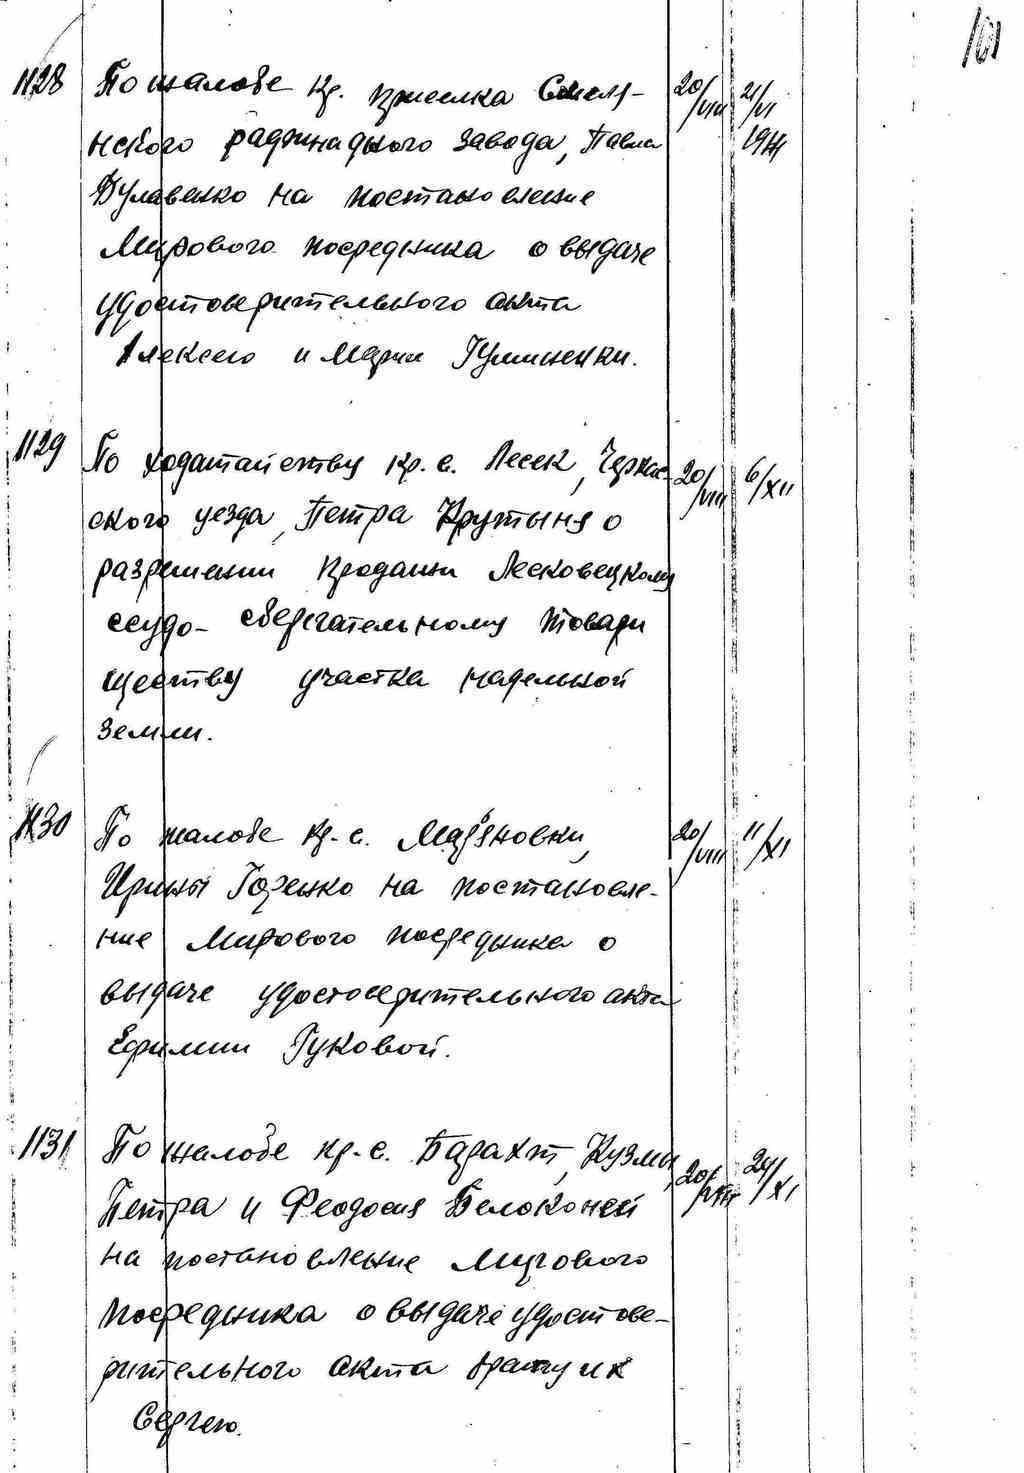 101
1128 По жалобе кр. приселка Смеля- 20/VIII 21/VI
нского рафинадного завода, Павла 1914
Дулавенко на постановление
Мирового посредника о выдаче
удостоверительного акта
Алексею и Марии Гулиненки.
1129 По ходатайству кр. с. Лесек, Черкас- 20/VIII 6/XII
ского уезда, Петра Крутыня о
разрешении продажи Лесковецкому
ссудо-сберегательному товари
ществу участка надельной
земли.
1130 По жалобе кр. с. Марьяновки, 20/VIII 11/XI
Ирины Горенко на постановле-
ние Мирового посредника о
выдаче удостоверительного акта
Ефимии Гуковой.
1131 По жалобе кр. с. Барахт, Кузмы, 20/VIII 24/XI
Петра и Феодосия Белоконей
на постановление Мирового
посредника о выдаче удостове-
рительного акта брату их
Сергею.